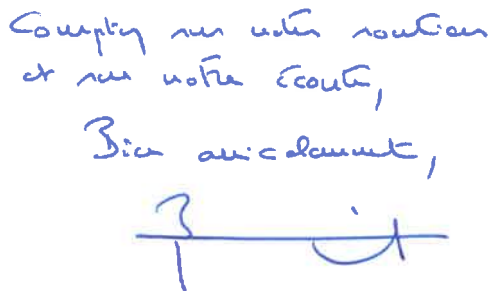 Comptez sur notre soutien
et sur notre écoute,
Bien amicalement,